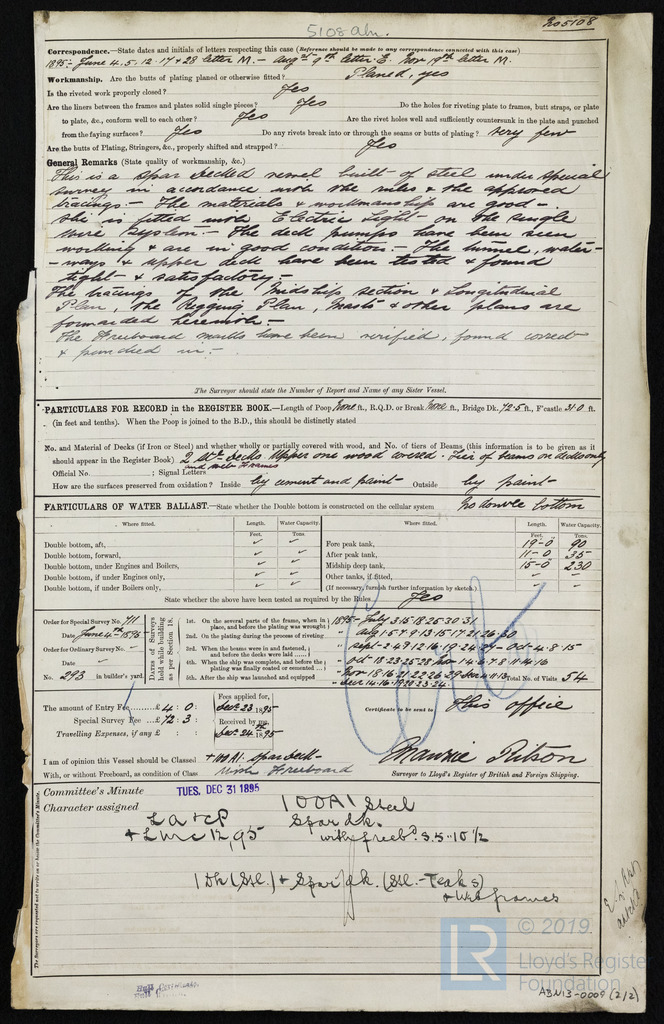 5108 abn.
No 5108
Correspondence.—State dates and initials of letters respecting this case (Reference should be made to any correspondence connected with this case)
1895:- June 4, 5, 12, 17 & 28 letter M. — Augst 9th letter E. Nov 19th letter M.
Workmanship. Are the butts of plating planed or otherwise fitted? Planed, yes
Is the riveted work properly closed? Yes
Are the liners between the frames and plates solid single pieces? Yes Do the holes for riveting plate to frames, butt straps, or plate
to plate, &c., conform well to each other? Yes Are the rivet holes well and sufficiently countersunk in the plate and punched
from the faying surfaces? Yes Do any rivets break into or through the seams or butts of plating? very few
Are the butts of Plating, Stringers, &c., properly shifted and strapped? Yes
General Remarks (State quality of workmanship, &c.)
This is a spar decked vessel built of steel under special
survey in accordance with the rules & the approved
tracings — The materials & workmanship are good —
She is fitted with Electric Light — on the single
wire System — The deck pumps have been seen
working & are in good condition — The tunnel, water-
-ways & upper deck have been tested & found
tight & satisfactory —
The tracings of the Midship section & Longitudinal
Plan, the Rigging Plan, Masts & other plans are
forwarded herewith —
The Freeboard marks have been verified, found correct
& punched in —
The Surveyor should state the Number of Report and Name of any Sister Vessel.
PARTICULARS FOR RECORD in the REGISTER BOOK.—Length of Poop None ft., R.Q.D. or Break None ft., Bridge Dk. 72.5 ft., F'castle 31.0 ft.
(in feet and tenths). When the Poop is joined to the B.D., this should be distinctly stated
No. and Material of Decks (if Iron or Steel) and whether wholly or partially covered with wood, and No. of tiers of Beams, (this information is to be given as it
should appear in the Register Book) 2 Stl Decks Upper one wood covered. Tier of beams on decks only
and web frames
Official No. ; Signal Letters
How are the surfaces preserved from oxidation? Inside by cement and paint Outside by paint
PARTICULARS OF WATER BALLAST.—State whether the Double bottom is constructed on the cellular system No double bottom
Where fitted. Length. Water Capacity. Where fitted. Length. Water Capacity.
Feet. Tons. Feet. Tons.
Double bottom, aft, Fore peak tank, 19-0 90
Double bottom, forward, After peak tank, 11-0 35
Double bottom, under Engines and Boilers, Midship deep tank, 15-0 230
Double bottom, if under Engines only, Other tanks, if fitted,
Double bottom, if under Boilers only, (If necessary, furnish further information by sketch.)
State whether the above have been tested as required by the Rules Yes
Order for Special Survey No. 711
Date June 4th 1895
Order for Ordinary Survey No.
Date
No. 293 in builder's yard.
Dates of Surveys held while building as per Section 18.
1st. On the several parts of the frame, when in place, and before the plating was wrought 1895 - July 3.15.18.25.30.31
2nd. On the plating during the process of riveting " Aug 1.5.7.9.13.15.17.21.26.30
3rd. When the beams were in and fastened, and before the decks were laid " Sept - 2.4.9.12.16.19.24.27 - Oct - 4.8.15
4th. When the ship was complete, and before the plating was finally coated or cemented " Oct - 18.23.25.28 Nov 1.4.6.7.8.11.14.16
5th. After the ship was launched and equipped " Nov - 18.16.21.22.26.29 Dec 4.11.13 Total No. of Visits 54
" Dec 14.16.19.20.23.24.
The amount of Entry Fee £4 : 0 : Fees applied for, Dec. 23. 1895
Special Survey Fee £72 : 3 : Received by me,
Travelling Expenses, if any £ : : Dec. 24th 1895
Certificate to be sent to This office
I am of opinion this Vessel should be Classed +100A1. Spar Deck
With, or without Freeboard, as condition of Class With Freeboard
Maurice Ritson
Surveyor to Lloyd's Register of British and Foreign Shipping.
Committee's Minute TUES. DEC 31 1895
Character assigned 100A1 Steel
LA&CP Spar dk.
+ LMC 12,95 with freebd. 3.5-10½
1 Dk (Stl.) & Spar dk. (Stl. - Teak s)
& Web frames
The Surveyors are requested not to write on or below the Committee's Minute.
© 2019
LR
Lloyd's Register
Foundation
ABN13-0009 (2/2)